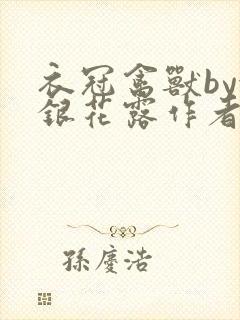 衣冠禽獸by
銀花露作者
孫慶浩